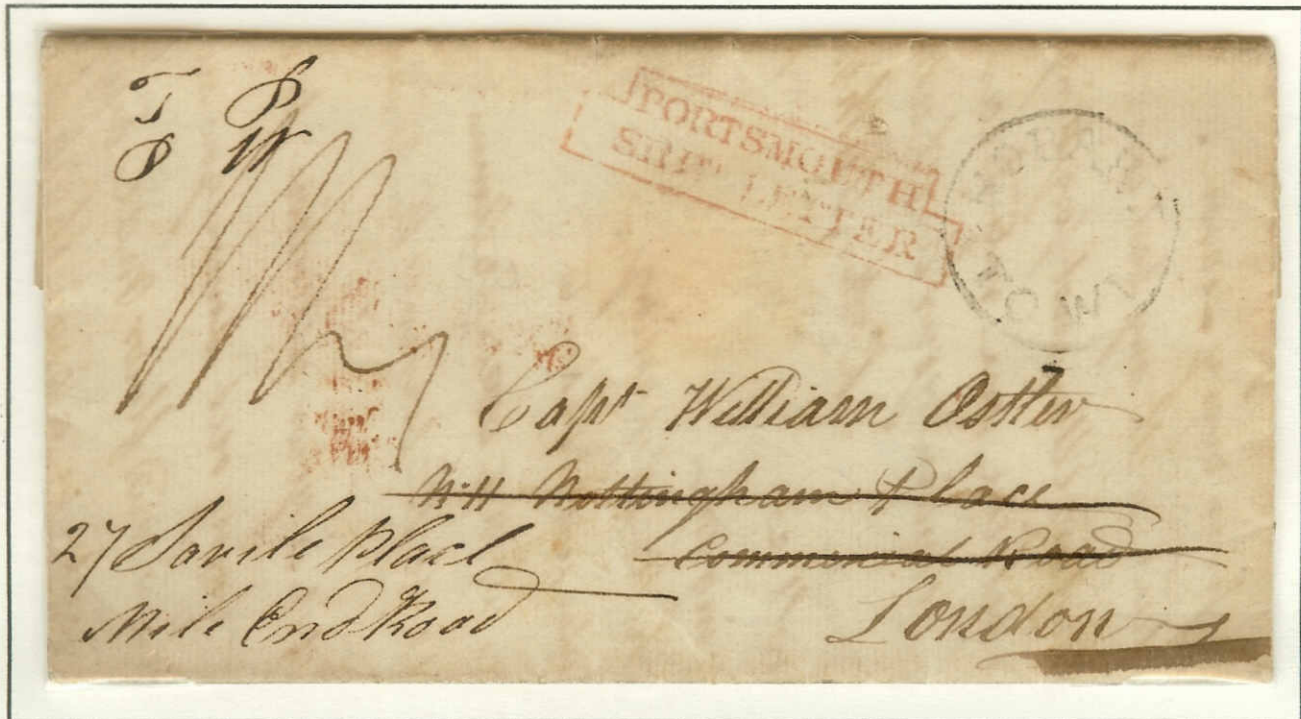 PORTSMOUTH
SHIP LETTER
HOBART
TOWN
Capt William Ostler
Nottingham Place
Commercial Road
London
27 Savile Place
Mile End Road